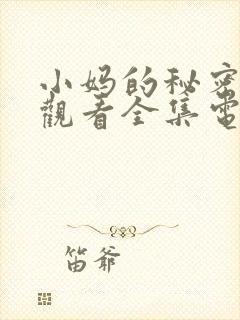 小妈的秘密
觀看全集電
笛爷